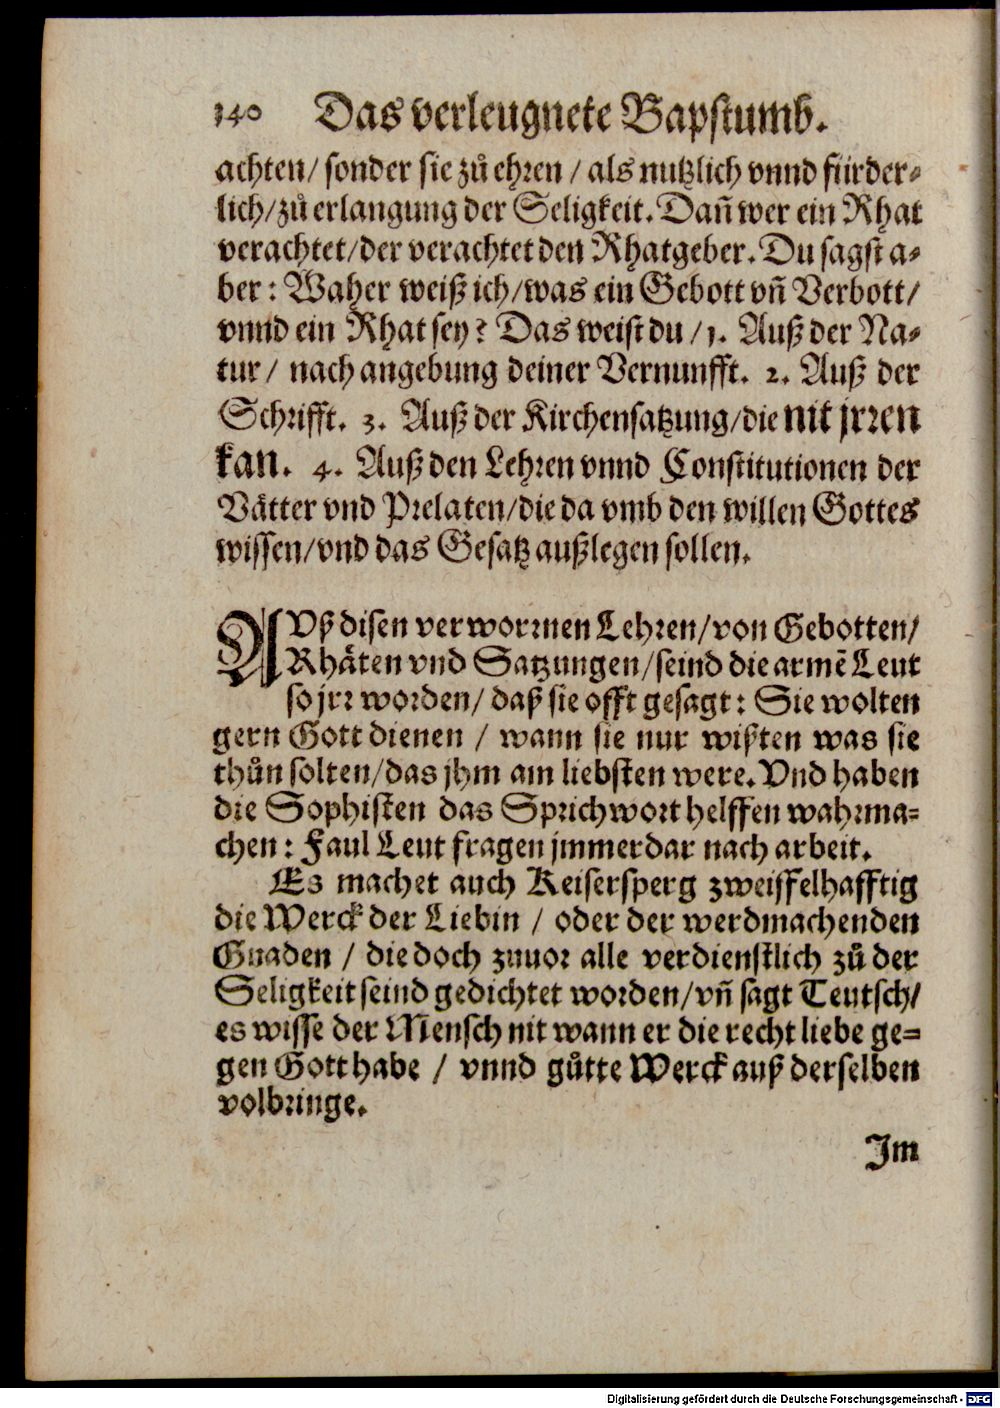 140 Das verleugnete Bapstumb.
achten/ sonder sie zů ehren / als nutzlich vnnd fürder-
lich/ zů erlangung der Seligkeit. Dañ wer ein Rhat
verachtet/ der verachtet den Rhatgeber. Du sagst a-
ber: Waher weiß ich/ was ein Gebott vñ Verbott/
vnnd ein Rhat sey? Das weist du / 1. Auß der Na-
tur/ nach angebung deiner Vernunfft. 2. Auß der
Schrifft. 3. Auß der Kirchensatzung/ die nit jrren
kan. 4. Auß den Lehren vnnd Constitutionen der
Våtter vnd Prelaten/ die da vmb den willen Gottes
wissen/ vnd das Gesatz außlegen sollen.
AVß disen verworrnen Lehren/ von Gebotten/
Rhåten vnd Satzungen/ seind die armē Leut
so jrr worden/ daß sie offt gesagt: Sie wolten
gern Gott dienen / wann sie nur wißten was sie
thůn solten/ das jhm am liebsten were. Vnd haben
die Sophisten das Sprichwort helffen wahrma-
chen: Faul Leut fragen jmmerdar nach arbeit.
Es machet auch Keisersperg zweiffelhafftig
die Werck der Liebin / oder der werdmachenden
Gnaden / die doch zuuor alle verdienstlich zů der
Seligkeit seind gedichtet worden/ vñ sagt Teutsch/
es wisse der Mensch nit wann er die recht liebe ge-
gen Gott habe / vnnd gůtte Werck auß derselben
volbringe.
Im
Digitalisierung gefördert durch die Deutsche Forschungsgemeinschaft - DFG